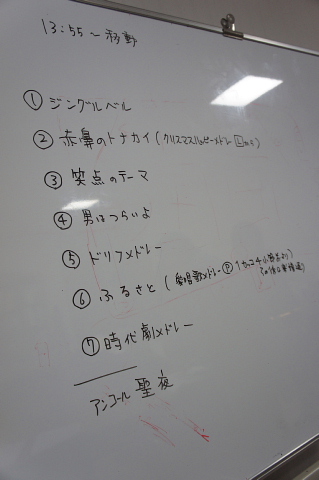 13:55～移動
① ジングルベル
② 赤鼻のトナカイ(クリスマスハッピーメドレー
③ 笑点のテーマ
④ 男はつらいよ
⑤ ドリフメドレー
⑥ ふるさと (唱歌メドレー Ⓟ
⑦ 時代劇メドレー
アンコール 聖夜